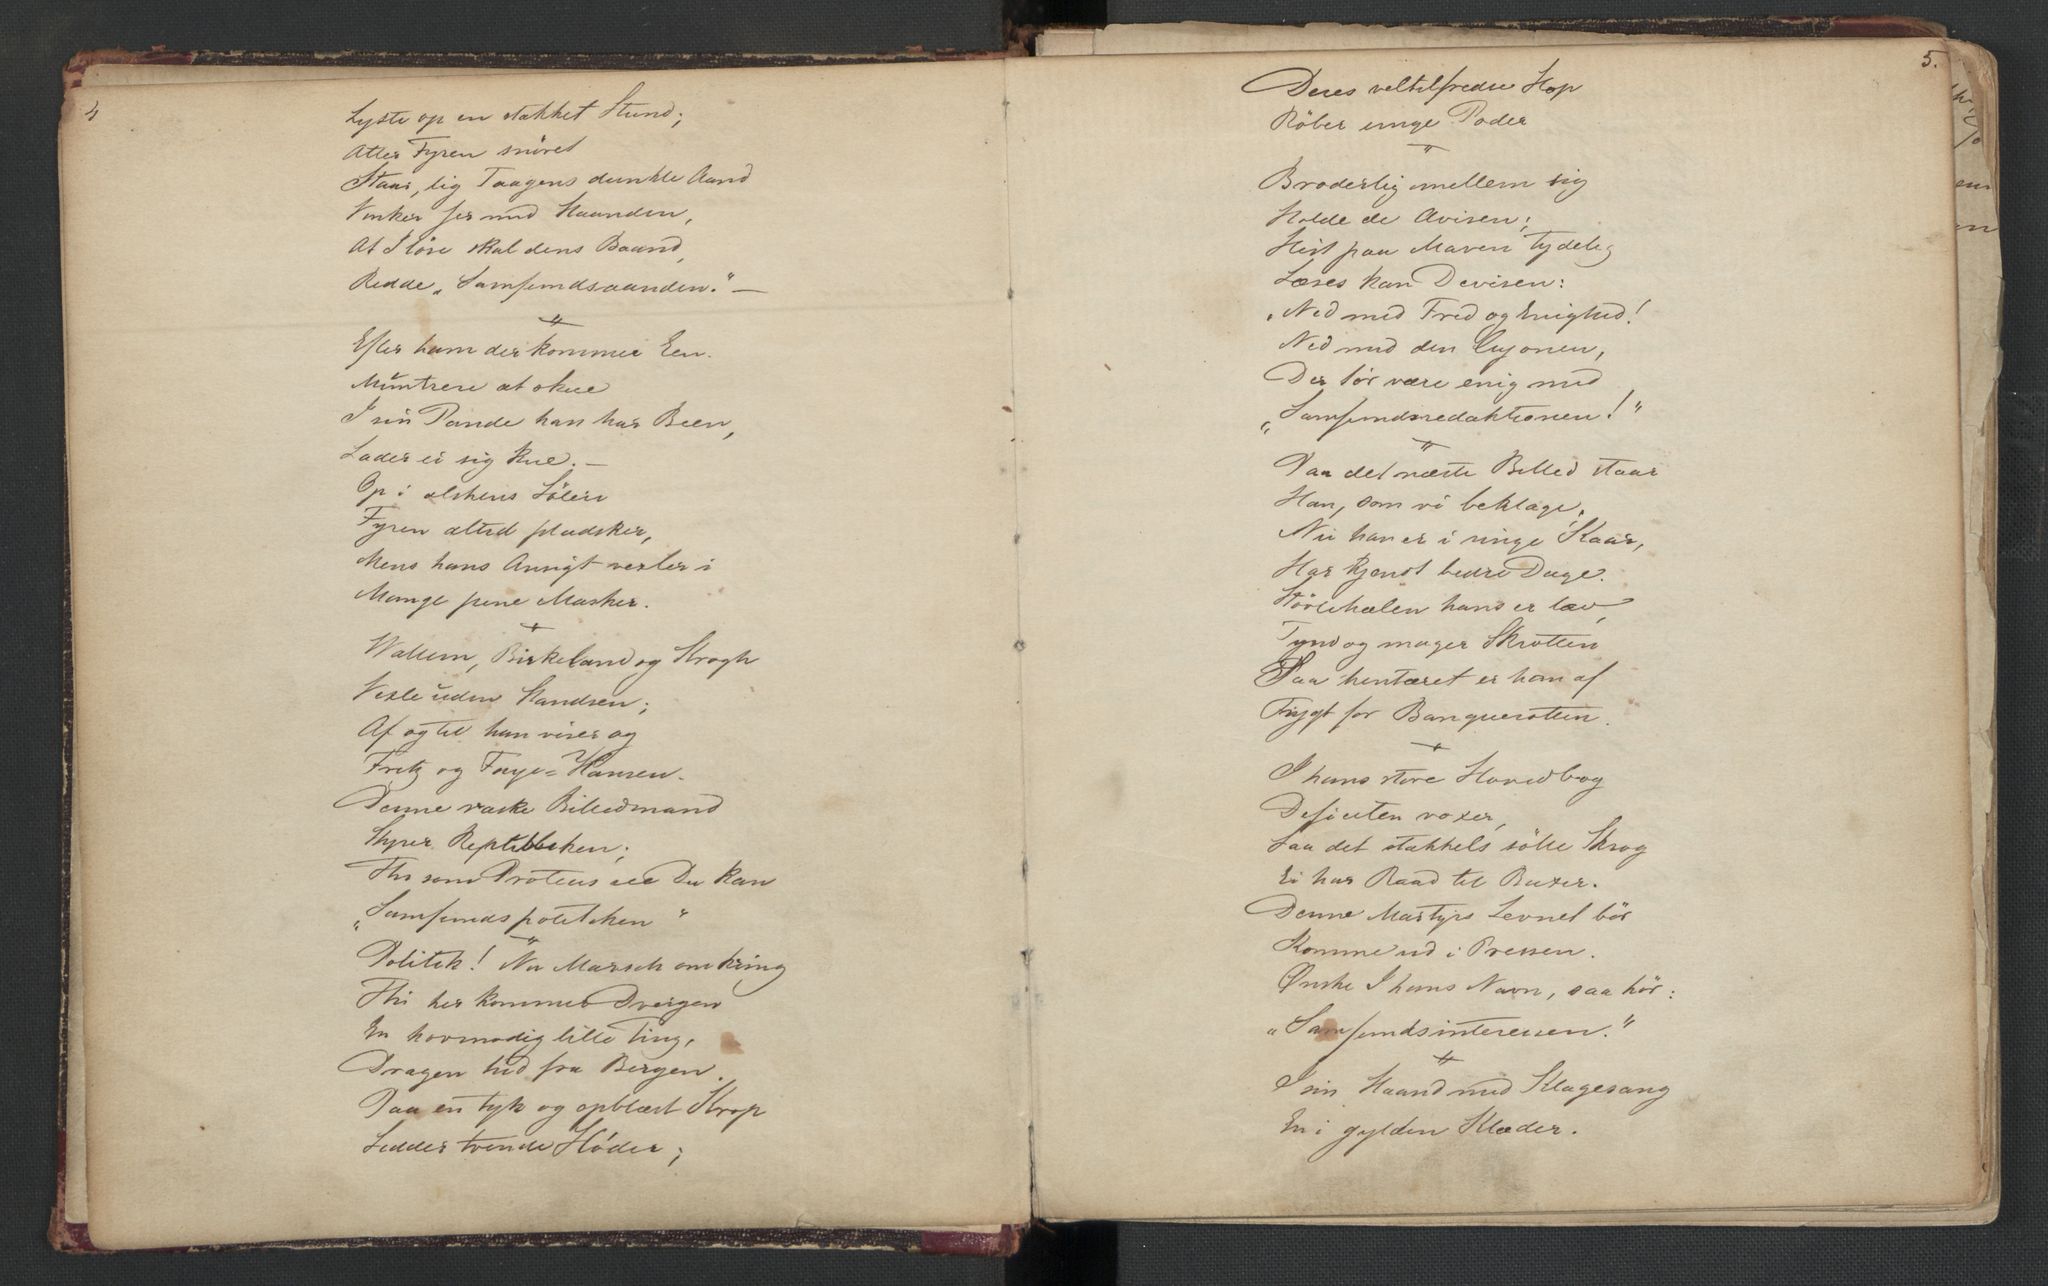 4
Lyste op en stakket Stund;
Atter Fyren snöret
Staar, lig Taagens dunkle Aand
Vinker Jer med Haanden,
At I löse skal dens Baand,
Redde „Samfundsaanden." —
Efter ham der kommer Een.
Muntrere at skue
I sin Pande han har Been,
Lader ei sig kue. —
Op i alskens Söleri
Fyren altid pladsker,
Mens hans Ansigt vexler i
Mange pene Masker.
Wallem, Birkeland og Krogh
Vexle uden Standsen;
Af og til han viser og
Fritz og Faye-Hansen.
Denne raske Billedmand
Styrer Republikken;
Thi som Proteus see Du kan
„Samfundspolitiken"
Politik! Nu Marsch omkring
Thi her kommer Dvergen
En hovmodig lille Ting,
Dragen hid fra Bergen.
Paa en tyk og opblæst Krop
Sidder tvende Hoder;
5.
Deres veltilfredse Hop
Röber unge Poder
Broderlig mellem sig
Holde de Avisen;
Hist paa Maven tydelig
Læses kan Devisen:
„Ned med Fred og Enighed!
Ned med den Cujonen,
Der tör være enig med
„Samfundsredaktionen!"
Paa det næste Billed staar
Han, som vi beklage,
Nu han er i ringe Kaar,
Har kjendt bedre Dage.
Störtehælen hans er lav,
Tynd og mager Skrotten
Saa hentæret er han af
Frygt for Banquerotten.
I hans store Hovedbog
Deficiten voxer,
Saa det stakkels sölle Skrog
Ei har Raad til Buxer.
Denne Martyrs Levnet bör
Komme ud i Pressen.
Ønske I hans Navn, saa hör:
„Samfundsinteressen."
I sin Haand med Klagesang
En i gylden Klæder.